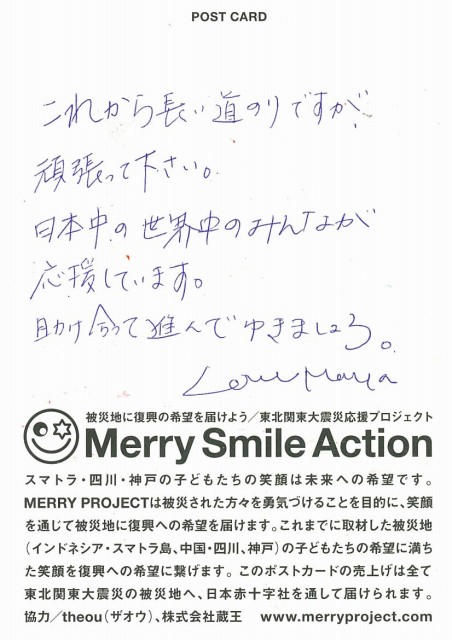 POST CARD
これから長い道のりですが、
頑張って下さい。
日本中の世界中のみんなが
応援しています。
助け合って進んでゆきましょう。
被災地に復興の希望を届けよう／東北関東大震災応援プロジェクト
Merry Smile Action
スマトラ・四川・神戸の子どもたちの笑顔は未来への希望です。
MERRY PROJECTは被災された方々を勇気づけることを目的に、笑顔
を通じて被災地に復興への希望を届けます。これまでに取材した被災地
（インドネシア・スマトラ島、中国・四川、神戸）の子どもたちの希望に満ち
た笑顔を復興への希望に繋げます。このポストカードの売上げは全て
東北関東大震災の被災地へ、日本赤十字社を通して届けられます。
協力／theou（ザオウ）、株式会社蔵王　www.merryproject.com